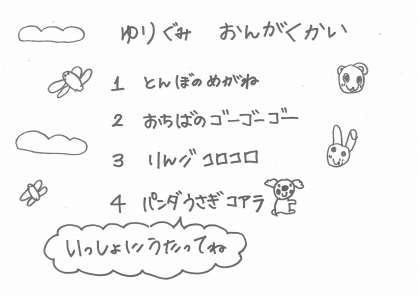 ゆりぐみ おんがくかい
1 とんぼのめがね
2 おちばのゴーゴーゴー
3 りんごコロコロ
4 パンダうさぎコアラ
いっしょにうたってね